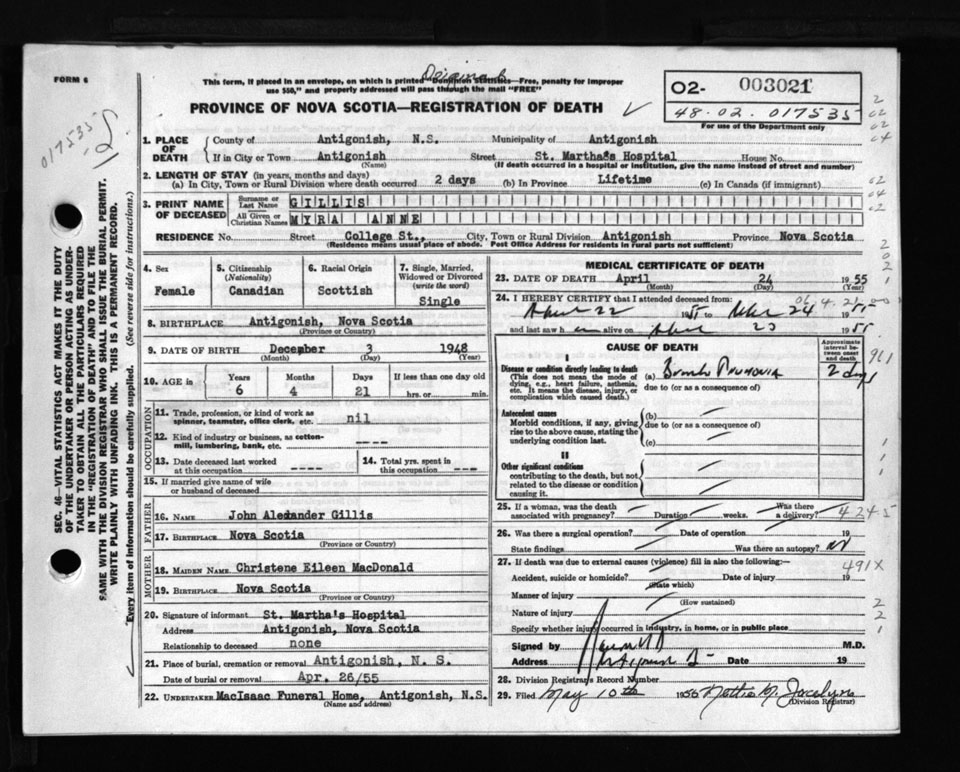 FORM 6
Original
This form, if placed in an envelope, on which is printed "Dominion Statistics—Free, penalty for improper
use $50," and properly addressed will pass through the mail "FREE"
PROVINCE OF NOVA SCOTIA—REGISTRATION OF DEATH
O2- 003021
48.02.017535
For use of the Department only
017535
SEC. 46—VITAL STATISTICS ACT MAKES IT THE DUTY
OF THE UNDERTAKER OR PERSON ACTING AS UNDER-
TAKER TO OBTAIN ALL THE PARTICULARS REQUIRED
IN THE "REGISTRATION OF DEATH" AND TO FILE THE
SAME WITH THE DIVISION REGISTRAR WHO SHALL ISSUE THE BURIAL PERMIT.
WRITE PLAINLY WITH UNFADING INK. THIS IS A PERMANENT RECORD.
Every item of information should be carefully supplied. (See reverse side for instructions.)
1. PLACE OF DEATH
County of Antigonish, N.S. Municipality of Antigonish
If in City or Town Antigonish Street St. Martha's Hospital House No.
(Name) (If death occurred in a hospital or institution, give the name instead of street and number)
2. LENGTH OF STAY (in years, months and days)
(a) In City, Town or Rural Division where death occurred 2 days (b) In Province Lifetime (c) In Canada (if immigrant)
3. PRINT NAME OF DECEASED
Surname or Last Name GILLIS
All Given or Christian Names MYRA ANNE
RESIDENCE No. Street College St., City, Town or Rural Division Antigonish Province Nova Scotia
(Residence means usual place of abode. Post Office Address for residents in rural parts not sufficient)
4. Sex
Female
5. Citizenship
(Nationality)
Canadian
6. Racial Origin
Scottish
7. Single, Married,
Widowed or Divorced
(write the word)
Single
8. BIRTHPLACE Antigonish, Nova Scotia
(Province or Country)
9. DATE OF BIRTH December 3 1948
(Month) (Day) (Year)
10. AGE in Years Months Days If less than one day old
6 4 21 hrs. or min.
OCCUPATION
11. Trade, profession, or kind of work as
spinner, teamster, office clerk, etc. nil
12. Kind of industry or business, as cotton-
mill, lumbering, bank, etc. ----
13. Date deceased last worked
at this occupation ----
14. Total yrs. spent in
this occupation ---
15. If married give name of wife
or husband of deceased
FATHER
16. NAME John Alexander Gillis
17. BIRTHPLACE Nova Scotia
(Province or Country)
MOTHER
18. MAIDEN NAME Christene Eileen MacDonald
19. BIRTHPLACE Nova Scotia
(Province or Country)
20. Signature of informant St. Martha's Hospital
Address Antigonish, Nova Scotia
Relationship to deceased none
21. Place of burial, cremation or removal Antigonish, N. S.
Date of burial or removal Apr. 26/55
22. UNDERTAKER MacIsaac Funeral Home, Antigonish, N.S.
(Name and address)
MEDICAL CERTIFICATE OF DEATH
23. DATE OF DEATH April 24 1955
(Month) (Day) (Year)
24. I HEREBY CERTIFY that I attended deceased from:
22 24 1955
and last saw h alive on 23 1955
CAUSE OF DEATH
Approximate
interval be-
tween onset
and death
I
Disease or condition directly leading to death
(This does not mean the mode of
dying, e.g., heart failure, asthenia,
etc. It means the disease, injury, or
complication which caused death.)
(a) Broncho Pneumonia 2 days
due to (or as a consequence of)
Antecedent causes
Morbid conditions, if any, giving
rise to the above cause, stating the
underlying condition last.
(b)
due to (or as a consequence of)
(c)
II
Other significant conditions
contributing to the death, but not
related to the disease or condition
causing it.
25. If a woman, was the death
associated with pregnancy? Duration weeks. Was there
a delivery? 4245
26. Was there a surgical operation? Date of operation 19
State findings Was there an autopsy? no
27. If death was due to external causes (violence) fill in also the following:
491X
Accident, suicide or homicide? Date of injury 19
(State which)
Manner of injury
(How sustained)
Nature of injury
Specify whether injury occurred in industry, in home, or in public place
Signed by M.D.
Address Date 19
28. Division Registrar's Record Number
29. Filed May 10th 1956 Nettie M. Jocelyn
(Division Registrar)